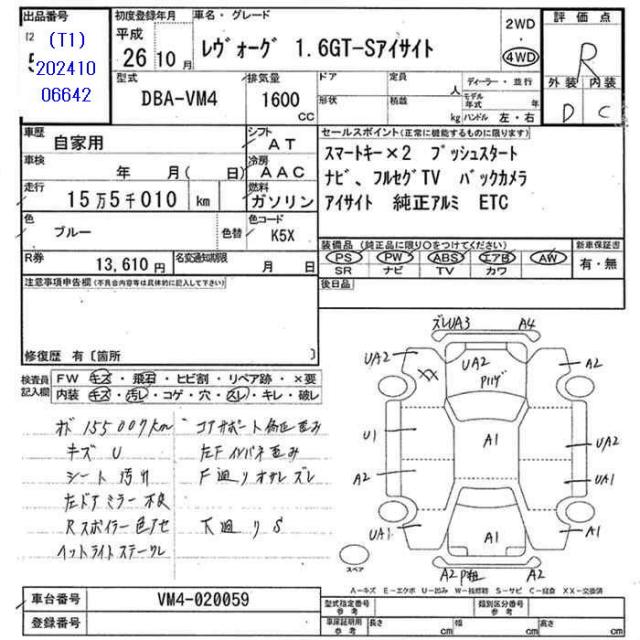 出品番号
(T1)
202410
06642
初度登録年月
平成
26 10 月
車名・グレード
レヴォーグ 1.6GT-Sアイサイト
2WD
・
4WD
評価点
R
外装 内装
D C
型式
DBA-VM4
排気量
1600
CC
ドア 定員 人 ディーラー・並行
形状 積載 kg モデル年式 年
ハンドル 左・右
車歴 自家用
シフト AT
車検 年 月( 日)
冷房 AAC
走行 15万5千010 km
燃料 ガソリン
色 ブルー 色替
色コード K5X
R券 13,610円
名変通知期限 月 日
セールスポイント(正常に機能するものに限ります)
スマートキー×2 プッシュスタート
ナビ、フルセグTV バックカメラ
アイサイト 純正アルミ ETC
装備品(純正品に限り○をつけてください)
PS PW ABS エアB AW
SR ナビ TV カワ
新車保証書
有・無
後日品
注意事項申告欄(不具合内容等は具体的に記入して下さい)
修復歴 有〔箇所 〕
検査員記入欄
FW キズ・飛石・ヒビ割・リペア跡・×要
内装 キズ・汚レ・コゲ・穴・スレ・キレ・破レ
メーター 155007km
キズ U
シート 汚れ
左ドアミラー 不良
Rスポイラー 色アセ
ヘットライトステークレ
コアサポート 修正 歪み
左Fインパネ 歪み
F廻り オサレ ズレ
下廻り S
ズレUA3 A4
UA2 XX UA2 Pハゲ A2
U1 A1 UA2
A2 UA1
UA1 A1 A1
A2 P粗 A2
スペア
A-キズ E-エクボ U-凹み W-技修跡 S-サビ C-腐食 XX-交換済
車台番号 VM4-020059
登録番号
型式指定番号 参考
類別区分番号 参考
車庫証明用 参考 長さ cm 幅 cm 高さ cm